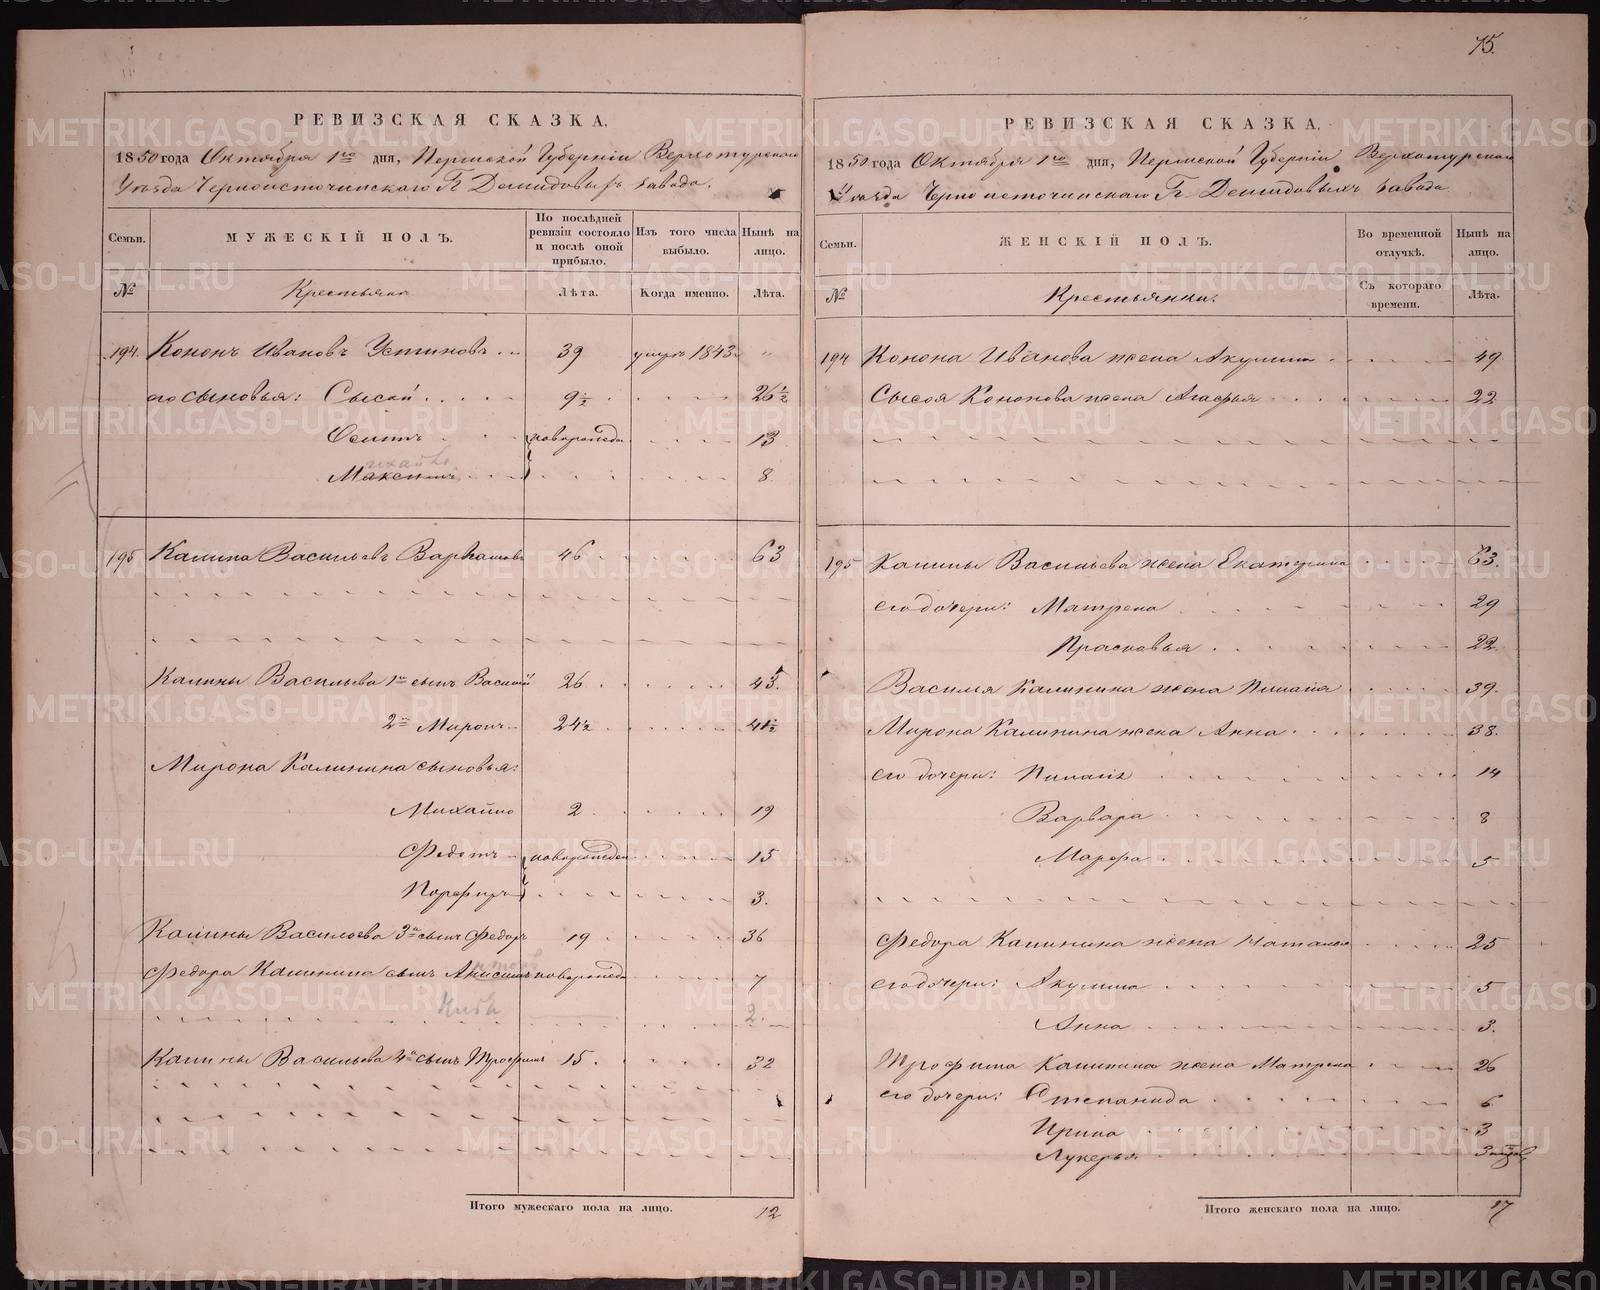 РЕВИЗСКАЯ СКАЗКА.
1850 года Октября 1го дня, Пермской Губерніи Верхотурскаго
Уѣзда Черноисточинскаго Гг Демидовыхъ завода.
Семьи.
МУЖЕСКІЙ ПОЛЪ.
По послѣдней ревизіи состояло и послѣ оной прибыло.
Изъ того числа выбыло.
Нынѣ на лицо.
№
Крестьяне
Лѣта.
Когда именно.
Лѣта.
194. Кононъ Ивановъ Устиновъ 39 умеръ 1843 "
его сыновья: Сысой 9½ 26½
Осипъ новорожден 13
Максимъ 8
195 Калина Васильевъ 46 63
Калины Васильева 1й сынъ Василій 26 45.
2й Миронъ 24½ 41½
Мирона Калинина сыновья:
Михайло 2 19
Федотъ новорожден 15
Порфиръ 3.
Калины Васильева 3й сынъ Федоръ 19 36
Федора Калинина сынъ Анисимъ новорожден 7
2.
Калины Васильева 4й сынъ Трофимъ 15 32
Итого мужескаго пола на лицо. 12
75.
РЕВИЗСКАЯ СКАЗКА.
1850 года Октября 1го дня, Пермской Губерніи Верхотурскаго
Уѣзда Черноисточинскаго Гг Демидовыхъ завода
Семьи.
ЖЕНСКІЙ ПОЛЪ.
Во временной отлучкѣ.
Нынѣ на лицо.
№
Крестьянки.
Съ котораго времени.
Лѣта.
194 Конона Иванова жена Акулина 49
Сысоя Кононова жена Агафья 22
195 Калины Васильева жена Екатерина 63.
его дочери: Матрена 29
Прасковья 22
Василія Калинина жена 39.
Мирона Калинина жена Анна 38.
его дочери: 14
Варвара 8
Марфа 5
Федора Калинина жена Наталья 25
его дочери: Акулина 5
Анна 3.
Трофима Калинина жена Матрена 26
его дочери: Степанида 6
Ирина 3
Лукерья 3
Итого женскаго пола на лицо. 17
METRIKI.GASO-URAL.RU